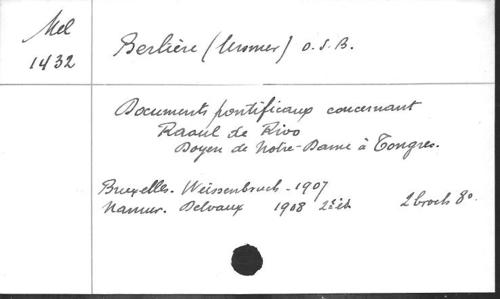 Mel
1432
Berlière (Ursmer) O.S.B.
Documents pontificaux concernant
Raoul de Rivo
Doyen de Notre-Dame à Tongres.
Bruxelles. Weissenbruch - 1907
Namur. Delvaux 1908 2 éd. 2 broch 8o.